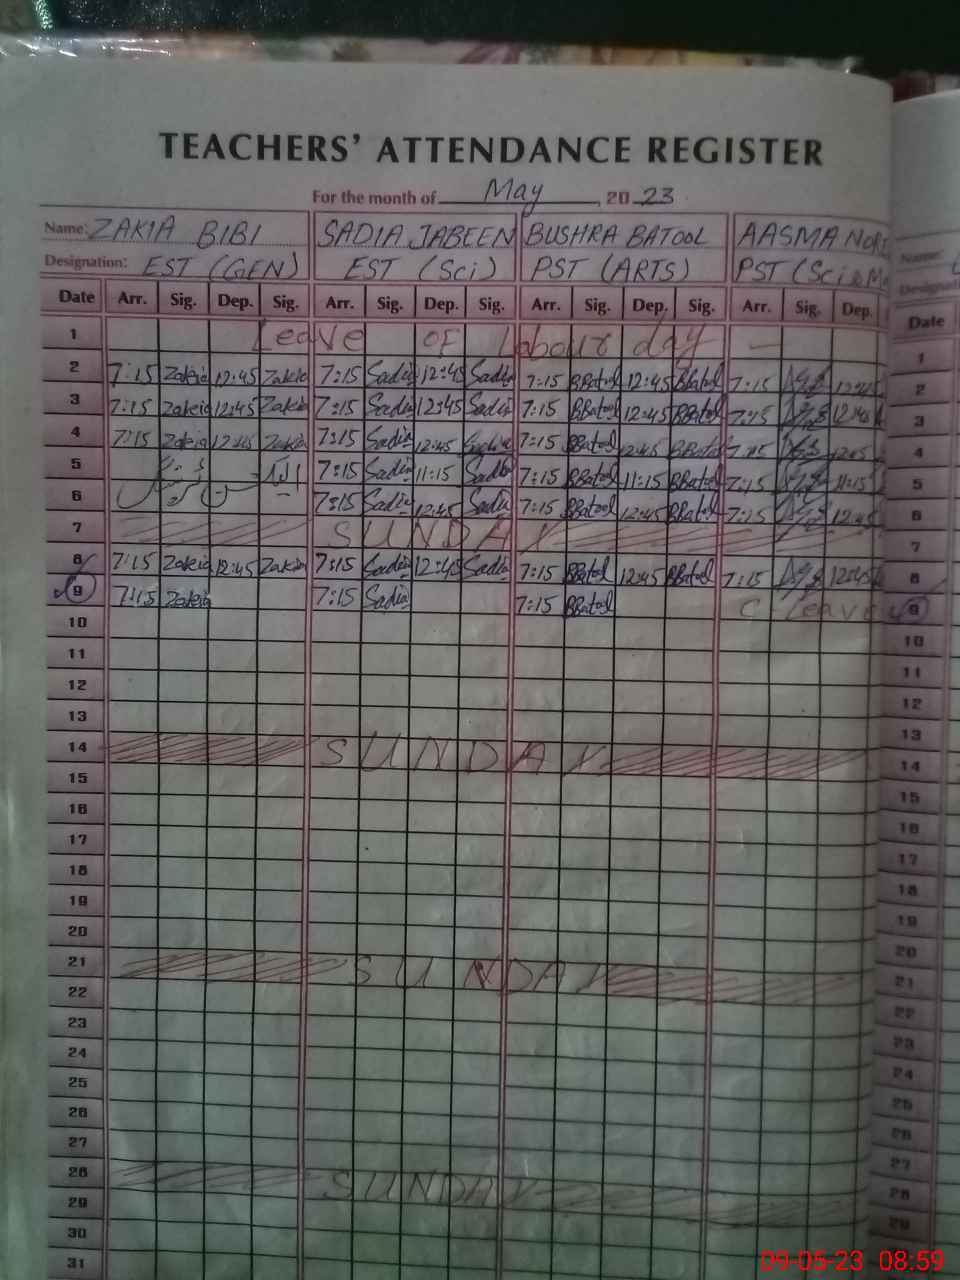 TEACHERS' ATTENDANCE REGISTER
For the month of May, 2023
Name: ZAKIA BIBI SADIA JABEEN BUSHRA BATOOL AASMA
Designation: EST (GEN) EST (Sci) PST (ARTS) PST (Sci
Date Arr. Sig. Dep. Sig. Arr. Sig. Dep. Sig. Arr. Sig. Dep. Sig. Arr. Sig. Dep. Date
1 Leave of Labour day — 1
2 7:15 Zakia 12:45 Zakia 7:15 Sadia 12:45 Sadia 7:15 BBatool 12:45 BBatool 7:15 12:45 2
3 7:15 Zakia 12:45 Zakia 7:15 Sadia 12:45 Sadia 7:15 BBatool 12:45 BBatool 7:15 12:45 3
4 7:15 Zakia 12:45 Zakia 7:15 Sadia 12:45 Sadia 7:15 BBatool 12:45 BBatool 7:15 12:45 4
5 7:15 Sadia 11:15 Sadia 7:15 BBatool 11:15 BBatool 7:15 11:15 5
6 7:15 Sadia 12:45 Sadia 7:15 BBatool 12:45 BBatool 7:15 12:45 6
7 SUNDAY 7
8 7:15 Zakia 12:45 Zakia 7:15 Sadia 12:45 Sadia 7:15 BBatool 12:45 BBatool 7:15 12:45 8
9 7:15 Zakia 7:15 Sadia 7:15 BBatool C Leave 9
10 10
11 11
12 12
13 13
14 SUNDAY 14
15 15
16 16
17 17
18 18
19 19
20 20
21 SUNDAY 21
22 22
23 23
24 24
25 25
26 26
27 27
28 SUNDAY 28
29 29
30
31
Name:
09-05-23 08:59